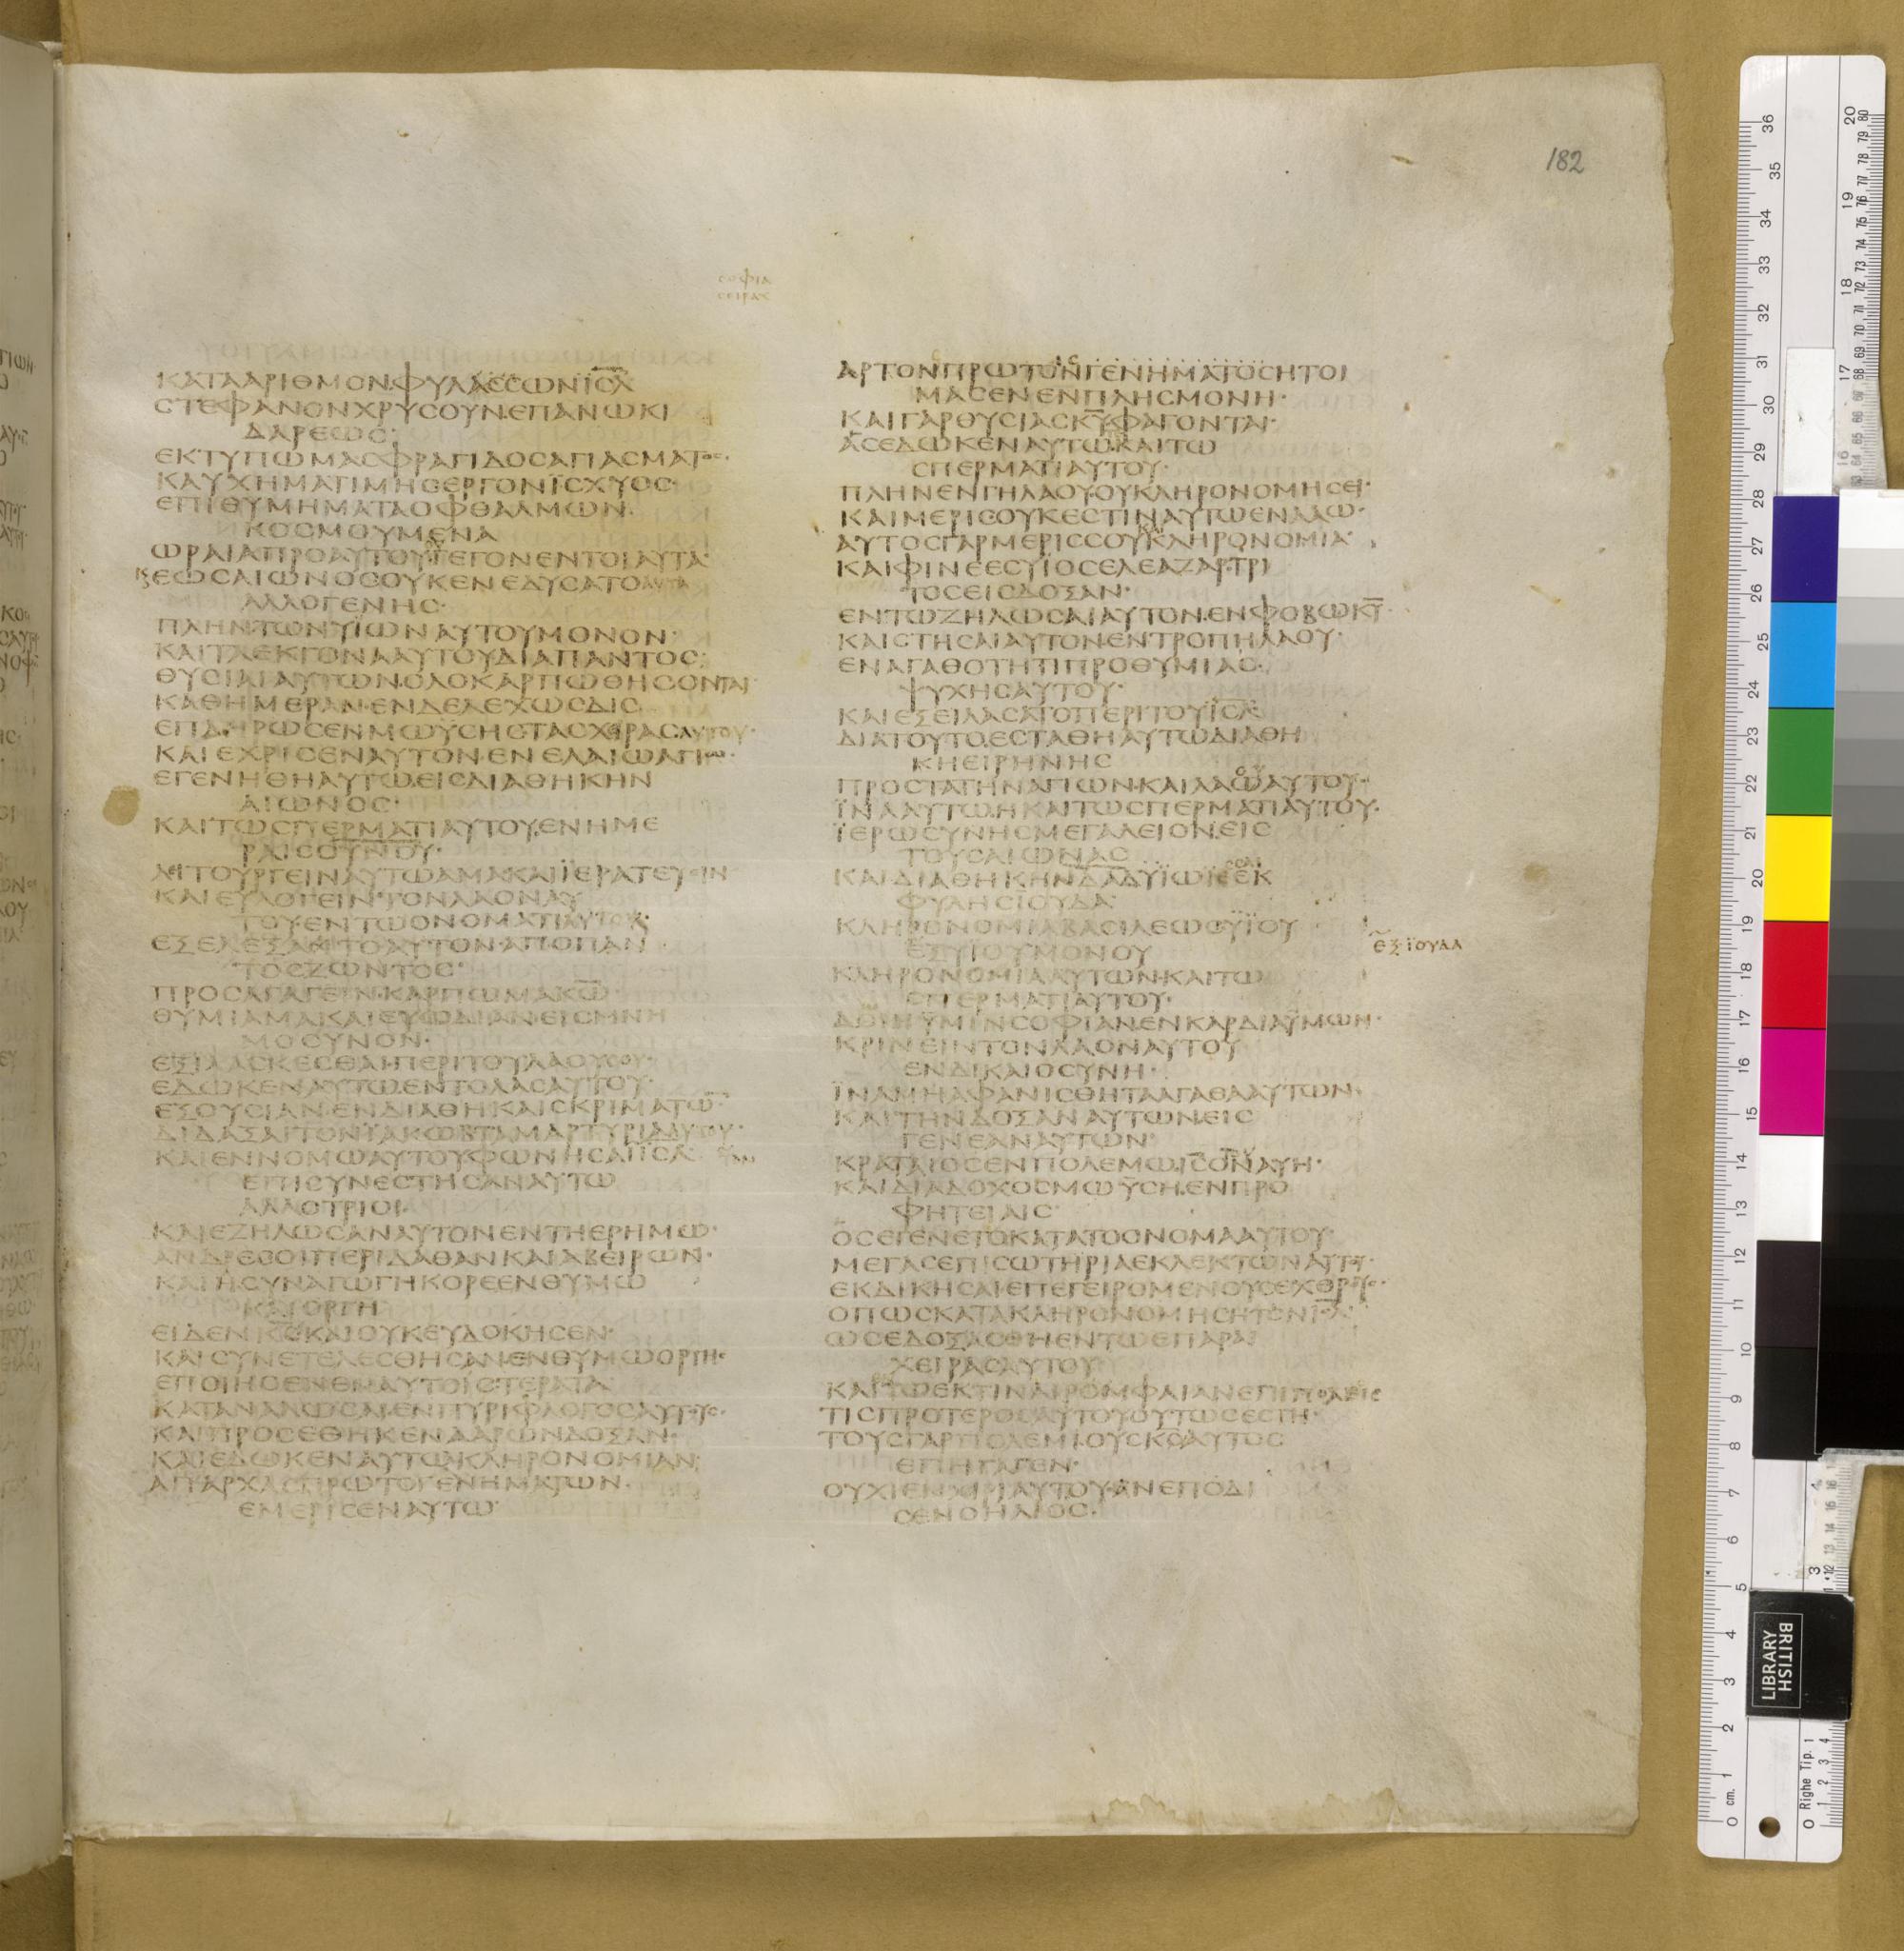 182
ϹΟΦΙΑ
ϹΕΙΡΑΧ
ΚΑΤΑΑΡΙΘΜΟΝΦΥΛΑϹϹΩΝΙϹΛ
ϹΤΕΦΑΝΟΝΧΡΥϹΟΥΝΕΠΑΝΩΚΙ
ΔΑΡΕΩϹ·
ΕΚΤΥΠΩΜΑϹΦΡΑΓΙΔΟϹΑΓΙΑϹΜΑΤΟϹ·
ΚΑΥΧΗΜΑΤΙΜΗϹΕΡΓΟΝΪϹΧΥΟϹ·
ΕΠΙΘΥΜΗΜΑΤΑΟΦΘΑΛΜΩΝ·
ΚΟϹΜΟΥΜΕΝΑ
ΩΡΑΙΑΠΡΟΑΥΤΟΥ ΓΕΓΟΝΕΝΤΟΙΑΥΤΑ·
ΕΩϹΑΙΩΝΟϹΟΥΚΕΝΕΔΥϹΑΤΟΑΥΤΑ
ΑΛΛΟΓΕΝΗϹ·
ΠΛΗΝΤΩΝΥΪΩΝΑΥΤΟΥΜΟΝΟΝ·
ΚΑΙΤΑΕΚΓΟΝΑΑΥΤΟΥΔΙΑΠΑΝΤΟϹ·
ΘΥϹΙΑΙΑΥΤΩΝΟΛΟΚΑΡΠΩΘΗϹΟΝΤΑΙ·
ΚΑΘΗΜΕΡΑΝΕΝΔΕΛΕΧΩϹΔΙϹ
ΕΠΛΗΡΩϹΕΝΜΩΫϹΗϹΤΑϹΧΙΡΑϹΑΥΤΟΥ·
ΚΑΙΕΧΡΙϹΕΝΑΥΤΟΝΕΝΕΛΑΙΩΑΓΙΩ·
ΕΓΕΝΗΘΗΑΥΤΩΕΙϹΔΙΑΘΗΚΗΝ
ΑΙΩΝΟϹ·
ΚΑΙΤΩϹΠΕΡΜΑΤΙΑΥΤΟΥΕΝΗΜΕ
ΡΑΙϹΟΥΝΟΥ·
ΛΙΤΟΥΡΓΕΙΝΑΥΤΩΑΜΑΚΑΙΪΕΡΑΤΕΥΕΙΝ
ΚΑΙΕΥΛΟΓΕΙΝΤΟΝΛΑΟΝΑΥ
ΤΟΥΕΝΤΩΟΝΟΜΑΤΙΑΥΤΟΥ·
ΕΞΕΛΕΞΑΤΟΑΥΤΟΝΑΠΟΠΑΝ
ΤΟϹΖΩΝΤΟϹ·
ΠΡΟϹΑΓΑΓΕΙΝΚΑΡΠΩΜΑΚΩ·
ΘΥΜΙΑΜΑΚΑΙΕΥΩΔΙΑΝΕΙϹΜΝΗ
ΜΟϹΥΝΟΝ·
ΕΞΙΛΑϹΚΕϹΘΑΙΠΕΡΙΤΟΥΛΑΟΥϹΟΥ·
ΕΔΩΚΕΝΑΥΤΩΕΝΤΟΛΑϹΑΥΤΟΥ·
ΕΞΟΥϹΙΑΝΕΝΔΙΑΘΗΚΑΙϹΚΡΙΜΑΤΩ·
ΔΙΔΑΞΑΙΤΟΝΪΑΚΩΒΤΑΜΑΡΤΥΡΙΑΑΥΤΟΥ·
ΚΑΙΕΝΝΟΜΩΑΥΤΟΥΦΩΝΗϹΑΙΙϹΛ·
ΕΠΙϹΥΝΕϹΤΗϹΑΝΑΥΤΩ
ΑΛΛΟΤΡΙΟΙ
ΚΑΙΕΖΗΛΩϹΑΝΑΥΤΟΝΕΝΤΗΕΡΗΜΩ·
ΑΝΔΡΕϹΟΙΠΕΡΙΔΑΘΑΝΚΑΙΑΒΕΙΡΩΝ·
ΚΑΙΗϹΥΝΑΓΩΓΗΚΟΡΕΕΝΘΥΜΩ
ΚΑΙΟΡΓΗ
ΕΙΔΕΝΚϹΚΑΙΟΥΚΕΥΔΟΚΗϹΕΝ·
ΚΑΙϹΥΝΕΤΕΛΕϹΘΗϹΑΝΕΝΘΥΜΩΟΡΓΗϹ·
ΕΠΟΙΗϹΕΝΕΝΑΥΤΟΙϹΤΕΡΑΤΑ
ΚΑΤΑΝΑΛΩϹΑΙΕΝΠΥΡΙΦΛΟΓΟϹΑΥΤΟΥϹ·
ΚΑΙΠΡΟϹΕΘΗΚΕΝΑΑΡΩΝΔΟΞΑΝ·
ΚΑΙΕΔΩΚΕΝΑΥΤΩΚΛΗΡΟΝΟΜΙΑΝ·
ΑΠΑΡΧΑϹΠΡΩΤΟΓΕΝΗΜΑΤΩΝ·
ΕΜΕΡΙϹΕΝΑΥΤΩ·
ΑΡΤΟΝΠΡΩΤΟΝΓΕΝΗΜΑΤΟϹΗΤΟΙ
ΜΑϹΕΝΕΝΠΛΗϹΜΟΝΗ·
ΚΑΙΓΑΡΘΥϹΙΑϹΚΥΦΑΓΟΝΤΑΙ·
ΑϹΕΔΩΚΕΝΑΥΤΩΚΑΙΤΩ
ϹΠΕΡΜΑΤΙΑΥΤΟΥ·
ΠΛΗΝΕΝΓΗΛΑΟΥΟΥΚΛΗΡΟΝΟΜΗϹΕΙ·
ΚΑΙΜΕΡΙϹΟΥΚΕϹΤΙΝΑΥΤΩΕΝΛΑΩ·
ΑΥΤΟϹΓΑΡΜΕΡΙϹϹΟΥΚΛΗΡΟΝΟΜΙΑ·
ΚΑΙΦΙΝΕΕϹΥΙΟϹΕΛΕΑΖΑΡΤΡΙ
ΤΟϹΕΙϹΔΟΞΑΝ·
ΕΝΤΩΖΗΛΩϹΑΙΑΥΤΟΝΕΝΦΟΒΩΚΥ·
ΚΑΙϹΤΗϹΑΙΑΥΤΟΝΕΝΤΡΟΠΗΛΑΟΥ·
ΕΝΑΓΑΘΟΤΗΤΙΠΡΟΘΥΜΙΑϹ·
ΨΥΧΗϹΑΥΤΟΥ·
ΚΑΙΕΞΕΙΛΑϹΑΤΟΠΕΡΙΤΟΥΪϹΛ·
ΔΙΑΤΟΥΤΟΕϹΤΑΘΗΑΥΤΩΔΙΑΘΗ
ΚΗΕΙΡΗΝΗϹ
ΠΡΟϹΤΑΤΗΝΑΓΙΩΝΚΑΙΛΑΩΑΥΤΟΥ·
ΪΝΑΑΥΤΩΗΚΑΙΤΩϹΠΕΡΜΑΤΙΑΥΤΟΥ·
ΪΕΡΩϹΥΝΗϹΜΕΓΑΛΕΙΟΝΕΙϹ
ΤΟΥϹΑΙΩΝΑϹ
ΚΑΙΔΙΑΘΗΚΗΝΔΑΔΥΪΩ ΕΚ
ΦΥΛΗϹΙΟΥΔΑ·
ΚΛΗΡΟΝΟΜΙΑΒΑϹΙΛΕΩϹΥΪΟΥ
ΕΞΥΙΟΥΜΟΝΟΥ
ΕΞΪΟΥΔΑ
ΚΛΗΡΟΝΟΜΙΑΑΥΤΩΝΚΑΙΤΩ
ϹΠΕΡΜΑΤΙΑΥΤΟΥ·
ΔΩΗΫΜΙΝϹΟΦΙΑΝΕΝΚΑΡΔΙΑΫΜΩΝ·
ΚΡΙΝΕΙΝΤΟΝΛΑΟΝΑΥΤΟΥ
ΕΝΔΙΚΑΙΟϹΥΝΗ·
ΪΝΑΜΗΑΦΑΝΙϹΘΗΤΑΑΓΑΘΑΑΥΤΩΝ·
ΚΑΙΤΗΝΔΟΞΑΝΑΥΤΩΝΕΙϹ
ΓΕΝΕΑΝΑΥΤΩΝ·
ΚΡΑΤΑΙΟϹΕΝΠΟΛΕΜΩΙϹΟΝΑΥΗ·
ΚΑΙΔΙΑΔΟΧΟϹΜΩΫϹΗΕΝΠΡΟ
ΦΗΤΕΙΑΙϹ·
ΟϹΕΓΕΝΕΤΟΚΑΤΑΤΟΟΝΟΜΑΑΥΤΟΥ·
ΜΕΓΑϹΕΠΙϹΩΤΗΡΙΑΕΚΛΕΚΤΩΝΑΥΤΟΥ·
ΕΚΔΙΚΗϹΑΙΕΠΕΓΕΙΡΟΜΕΝΟΥϹΕΧΘΡΟΥϹ·
ΟΠΩϹΚΑΤΑΚΛΗΡΟΝΟΜΗϹΗΤΟΝΙϹΛ·
ΩϹΕΔΟΞΑϹΘΗΕΝΤΩΕΠΑΡΑΙ
ΧΕΙΡΑϹΑΥΤΟΥ
ΚΑΙΤΩΕΚΤΙΝΑΙΡΟΜΦΑΙΑΝΕΠΙΠΟΛΕΙϹ
ΤΙϹΠΡΟΤΕΡΟϹΑΥΤΟΥΟΥΤΩϹΕϹΤΗ·
ΤΟΥϹΓΑΡΠΟΛΕΜΙΟΥϹΚϹΑΥΤΟϹ
ΕΠΗΓΑΓΕΝ·
ΟΥΧΙΕΝΧΙΡΙΑΥΤΟΥΑΝΕΠΟΔΙ
ϹΕΝΟΗΛΙΟϹ·